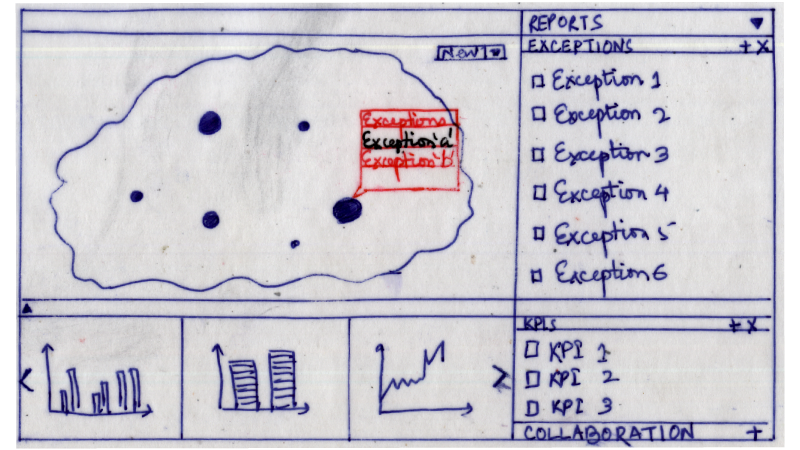 New
Exceptions
Exception 'a'
Exception 'b'
REPORTS
EXCEPTIONS + X
Exception 1
Exception 2
Exception 3
Exception 4
Exception 5
Exception 6
KPIs + X
KPI 1
KPI 2
KPI 3
COLLABORATION +